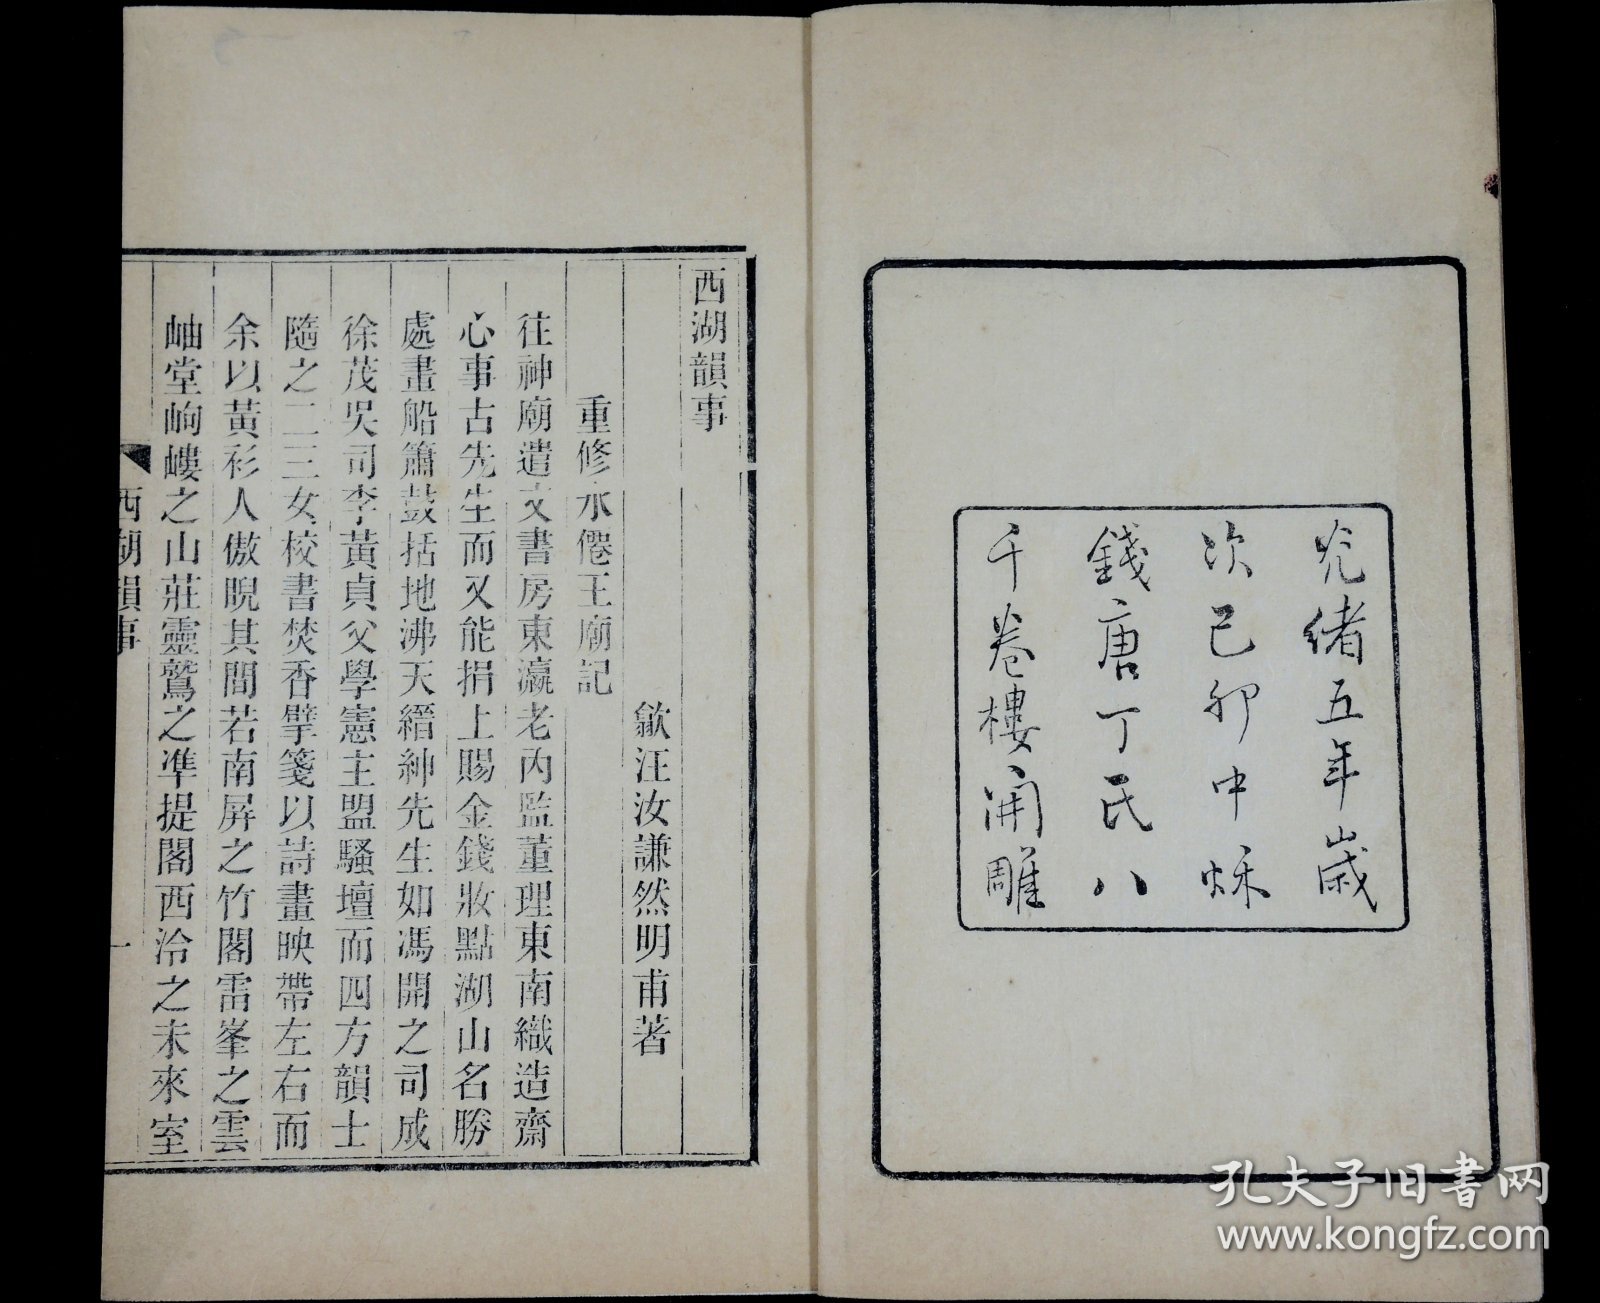 光緒五年歲
次己卯中秌
錢唐丁氏八
千卷樓開雕
西湖韻事
歙汪汝謙然明甫著
重修水僊王廟記
往神廟遣文書房東瀛老內監董理東南織造齋
心事古先生而又能捐上賜金錢妝點湖山名勝
處畫船簫鼓括地沸天縉紳先生如馮開之司成
徐茂吳司李黃貞父學憲主盟騷壇而四方韻士
隨之二三女校書焚香擘箋以詩畫映帶左右而
余以黃衫人傲睨其間若南屏之竹閣雷峯之雲
岫堂岣嶁之山莊靈鷲之準提閣西泠之未來室
西湖韻事
一
孔夫子旧书网
www.kongfz.com